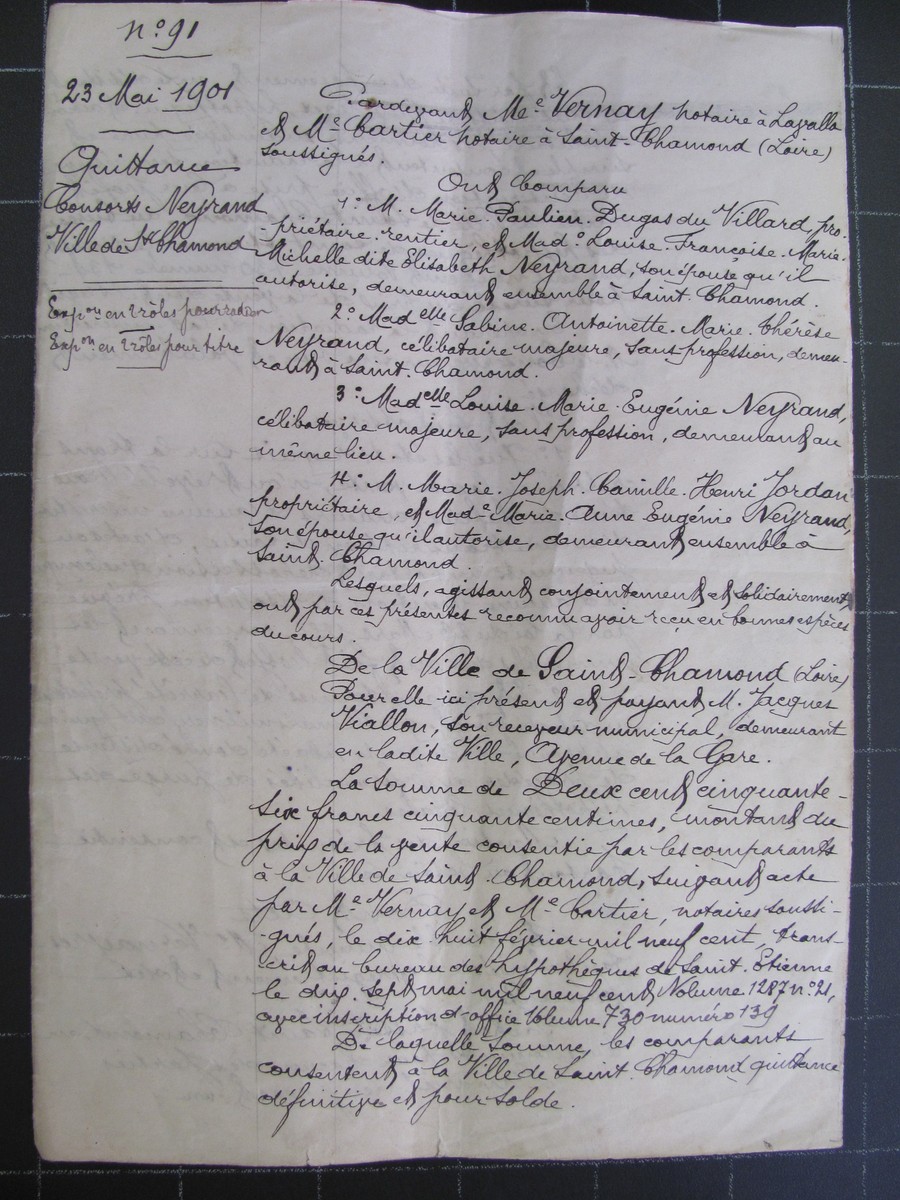 n° 91
23 Mai 1901
Quittance
Consorts Neyrand
Ville de St Chamond
Expon en 2 rôles pour radion
Expon en 2 rôles pour titre
Pardevant Me Vernay notaire à Lavalla
et Me Cartier notaire à Saint-Chamond (Loire)
soussignés.
Ont Comparu
1° M. Marie-Paulien Dugas du Villard, pro-
-priétaire-rentier, et Made Louise-Françoise-Marie-
Michelle dite Elisabeth Neyrand, son épouse qu'il
autorise, demeurant ensemble à Saint-Chamond.
2° Madelle Sabine-Antoinette-Marie-Thérèse
Neyrand, célibataire majeure, sans profession, demeu-
rant à Saint-Chamond.
3° Madelle Louise-Marie-Eugénie Neyrand,
célibataire majeure, sans profession, demeurant au
même lieu.
4° M. Marie-Joseph-Camille-Henri Jordan
propriétaire, et Made Marie-Anne Eugénie Neyrand,
son épouse qu'il autorise, demeurant ensemble à
Saint-Chamond.
Lesquels, agissant conjointement et solidairement
ont par ces présentes reconnu avoir reçu en bonnes espèces
du cours.
De la Ville de Saint-Chamond (Loire)
Pour elle ici présent et payant M. Jacques
Viallon, son receveur municipal, demeurant
en ladite Ville, Avenue de la Gare.
La somme de Deux cent cinquante-
six francs cinquante centimes, montant du
prix de la vente consentie par les comparants
à la Ville de Saint-Chamond, suivant acte
par Me Vernay et Me Cartier, notaires soussi-
-gnés, le dix-huit février mil neuf cent, trans-
-crit au bureau des hypothèques de Saint-Etienne
le dix-sept mai mil neuf cent, Volume 1287 n° 21,
avec inscription d'office Volume 730 numéro 139
De laquelle somme, les comparants
consentent à la Ville de Saint-Chamond quittance
définitive et pour solde.